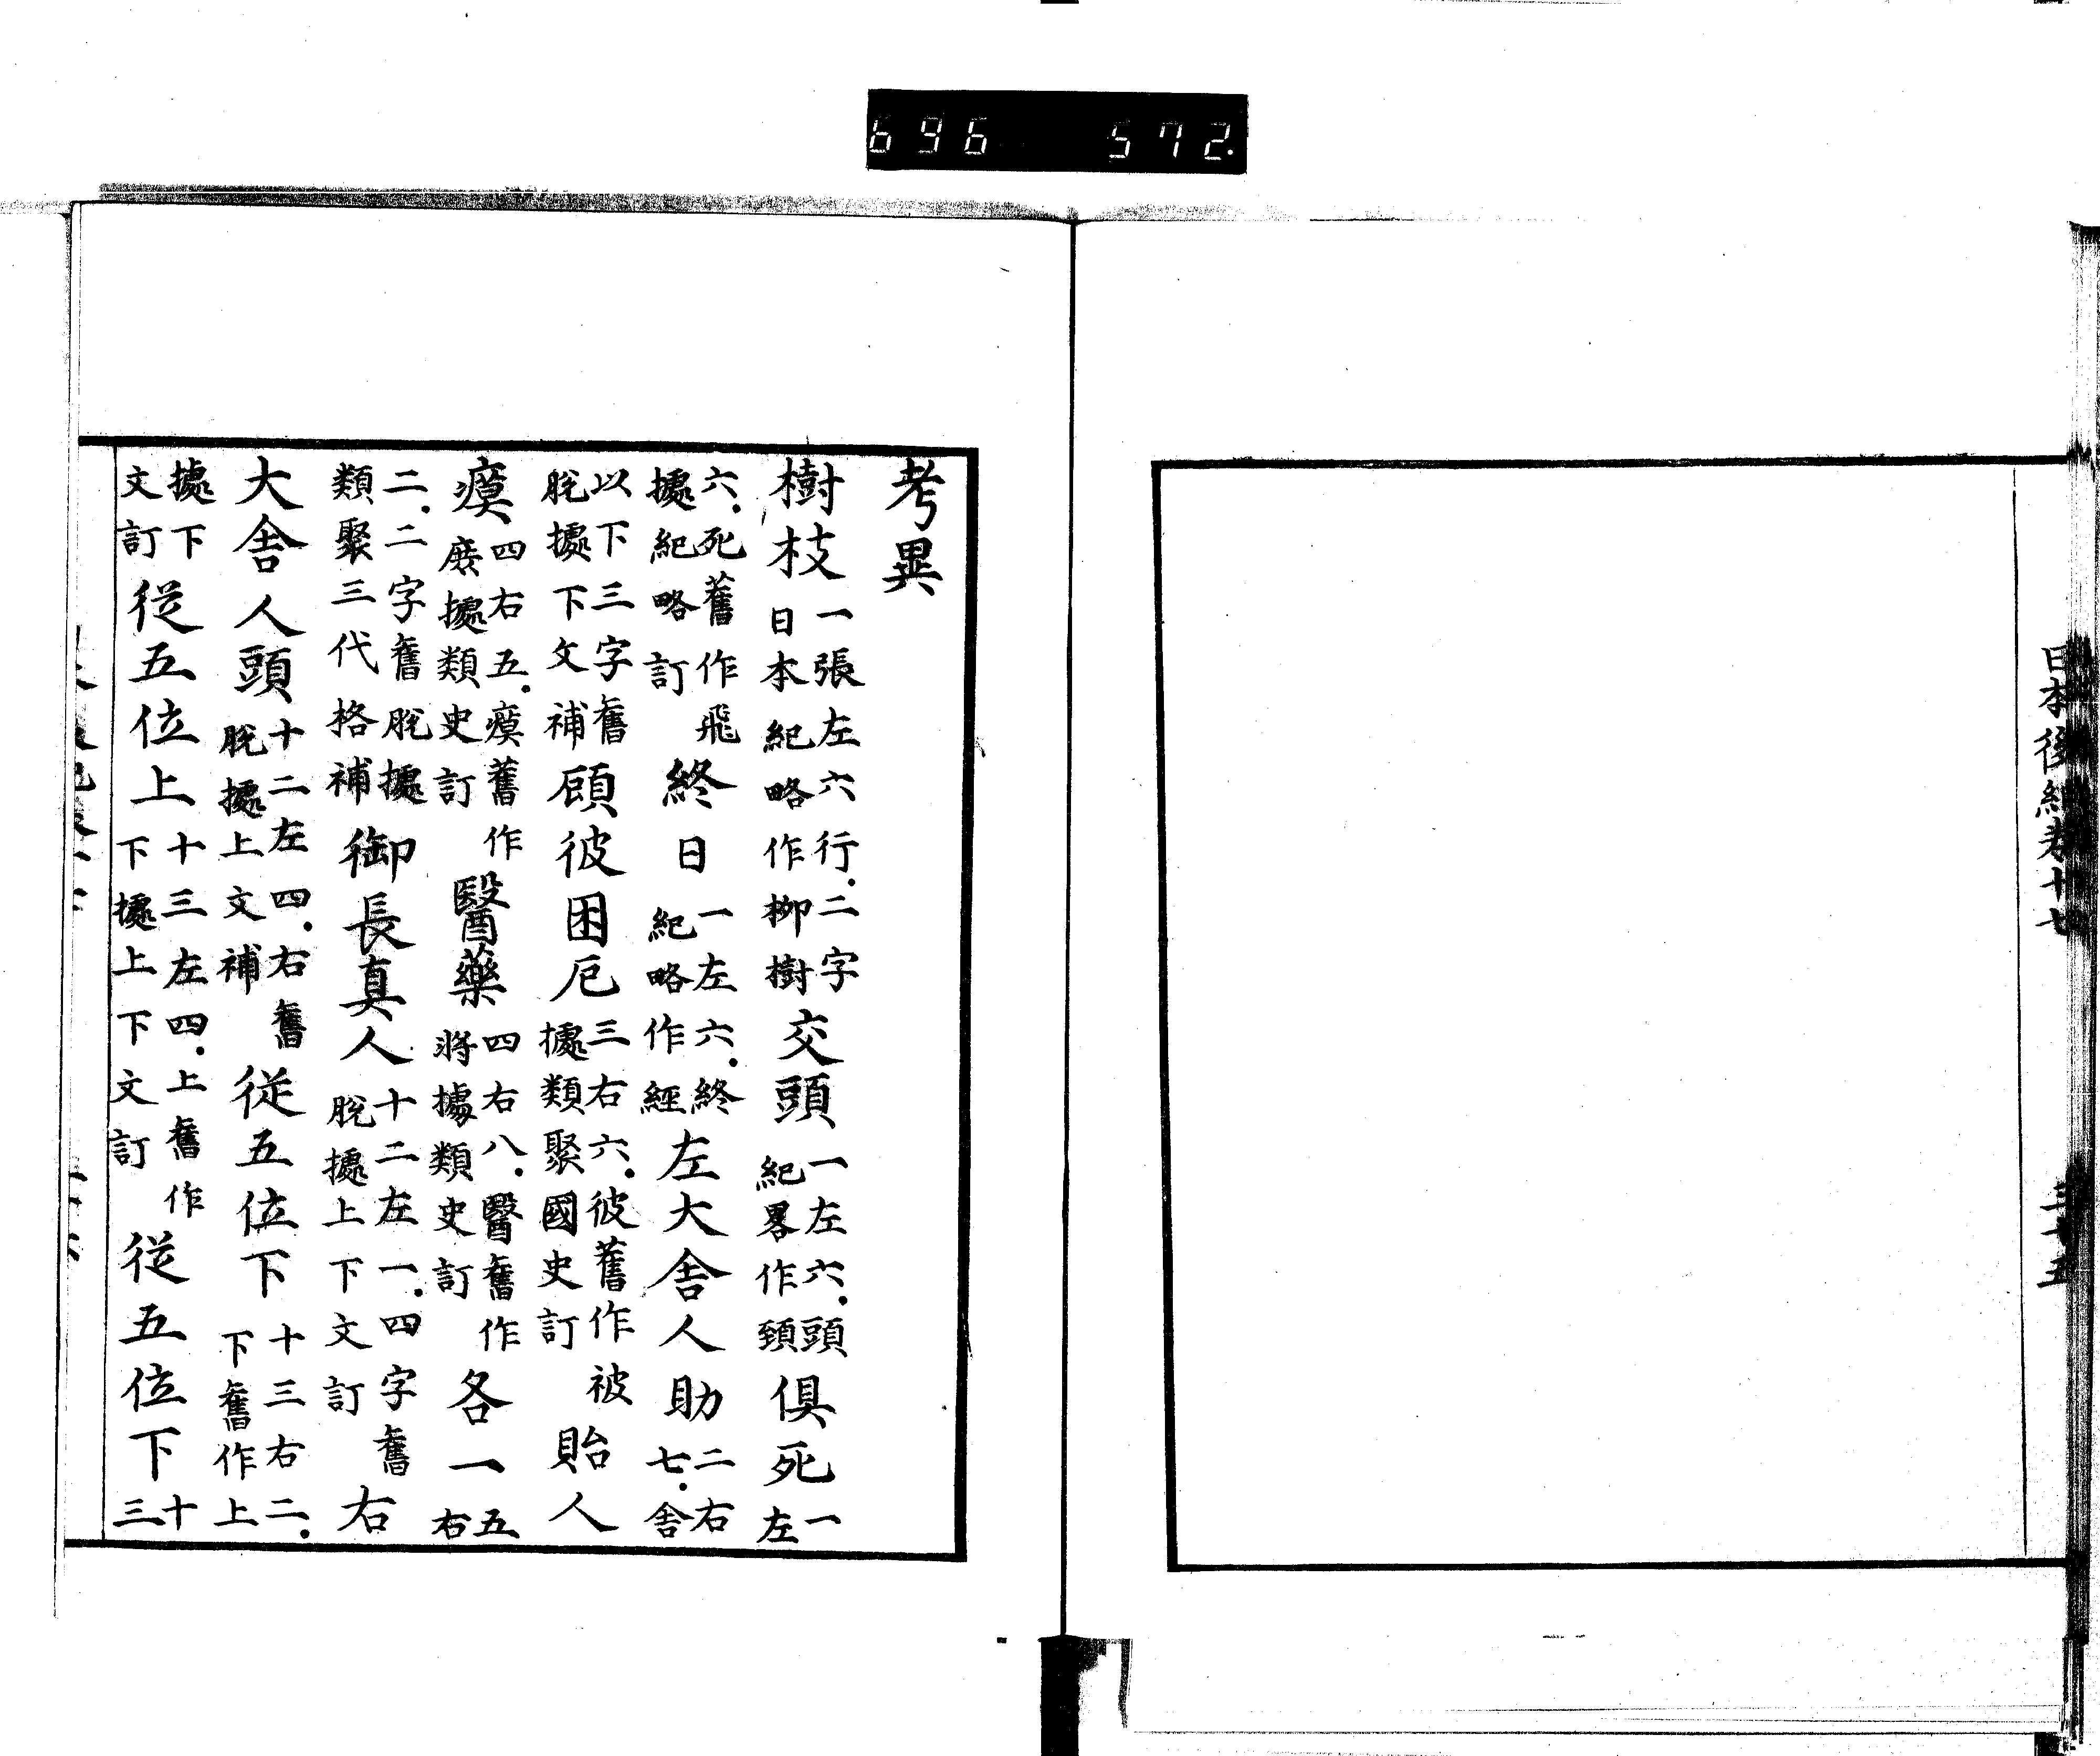 696 572.
日本後紀卷十七
考異
樹枝一張左六行.二字日本紀略作柳樹交頭一左六.頭紀畧作頸俱死一左
六.死舊作飛據紀略訂終日一左六.終紀略作經左大舍人助二右七.舍
以下三字舊脫據下文補顧彼困厄三右六.彼舊作被據類聚國史訂貽人
瘼四右五.瘼舊作庶據類史訂醫藥四右八.醫舊作將據類史訂各一五右
二.二字舊脫據類聚三代格補御長真人十二左一.四字舊脫據上下文訂右
大舍人頭十二左四.右舊脫據上文補從五位下十三右二.下舊作上
據下文訂從五位上十三左四.上舊作下據上下文訂從五位下十三